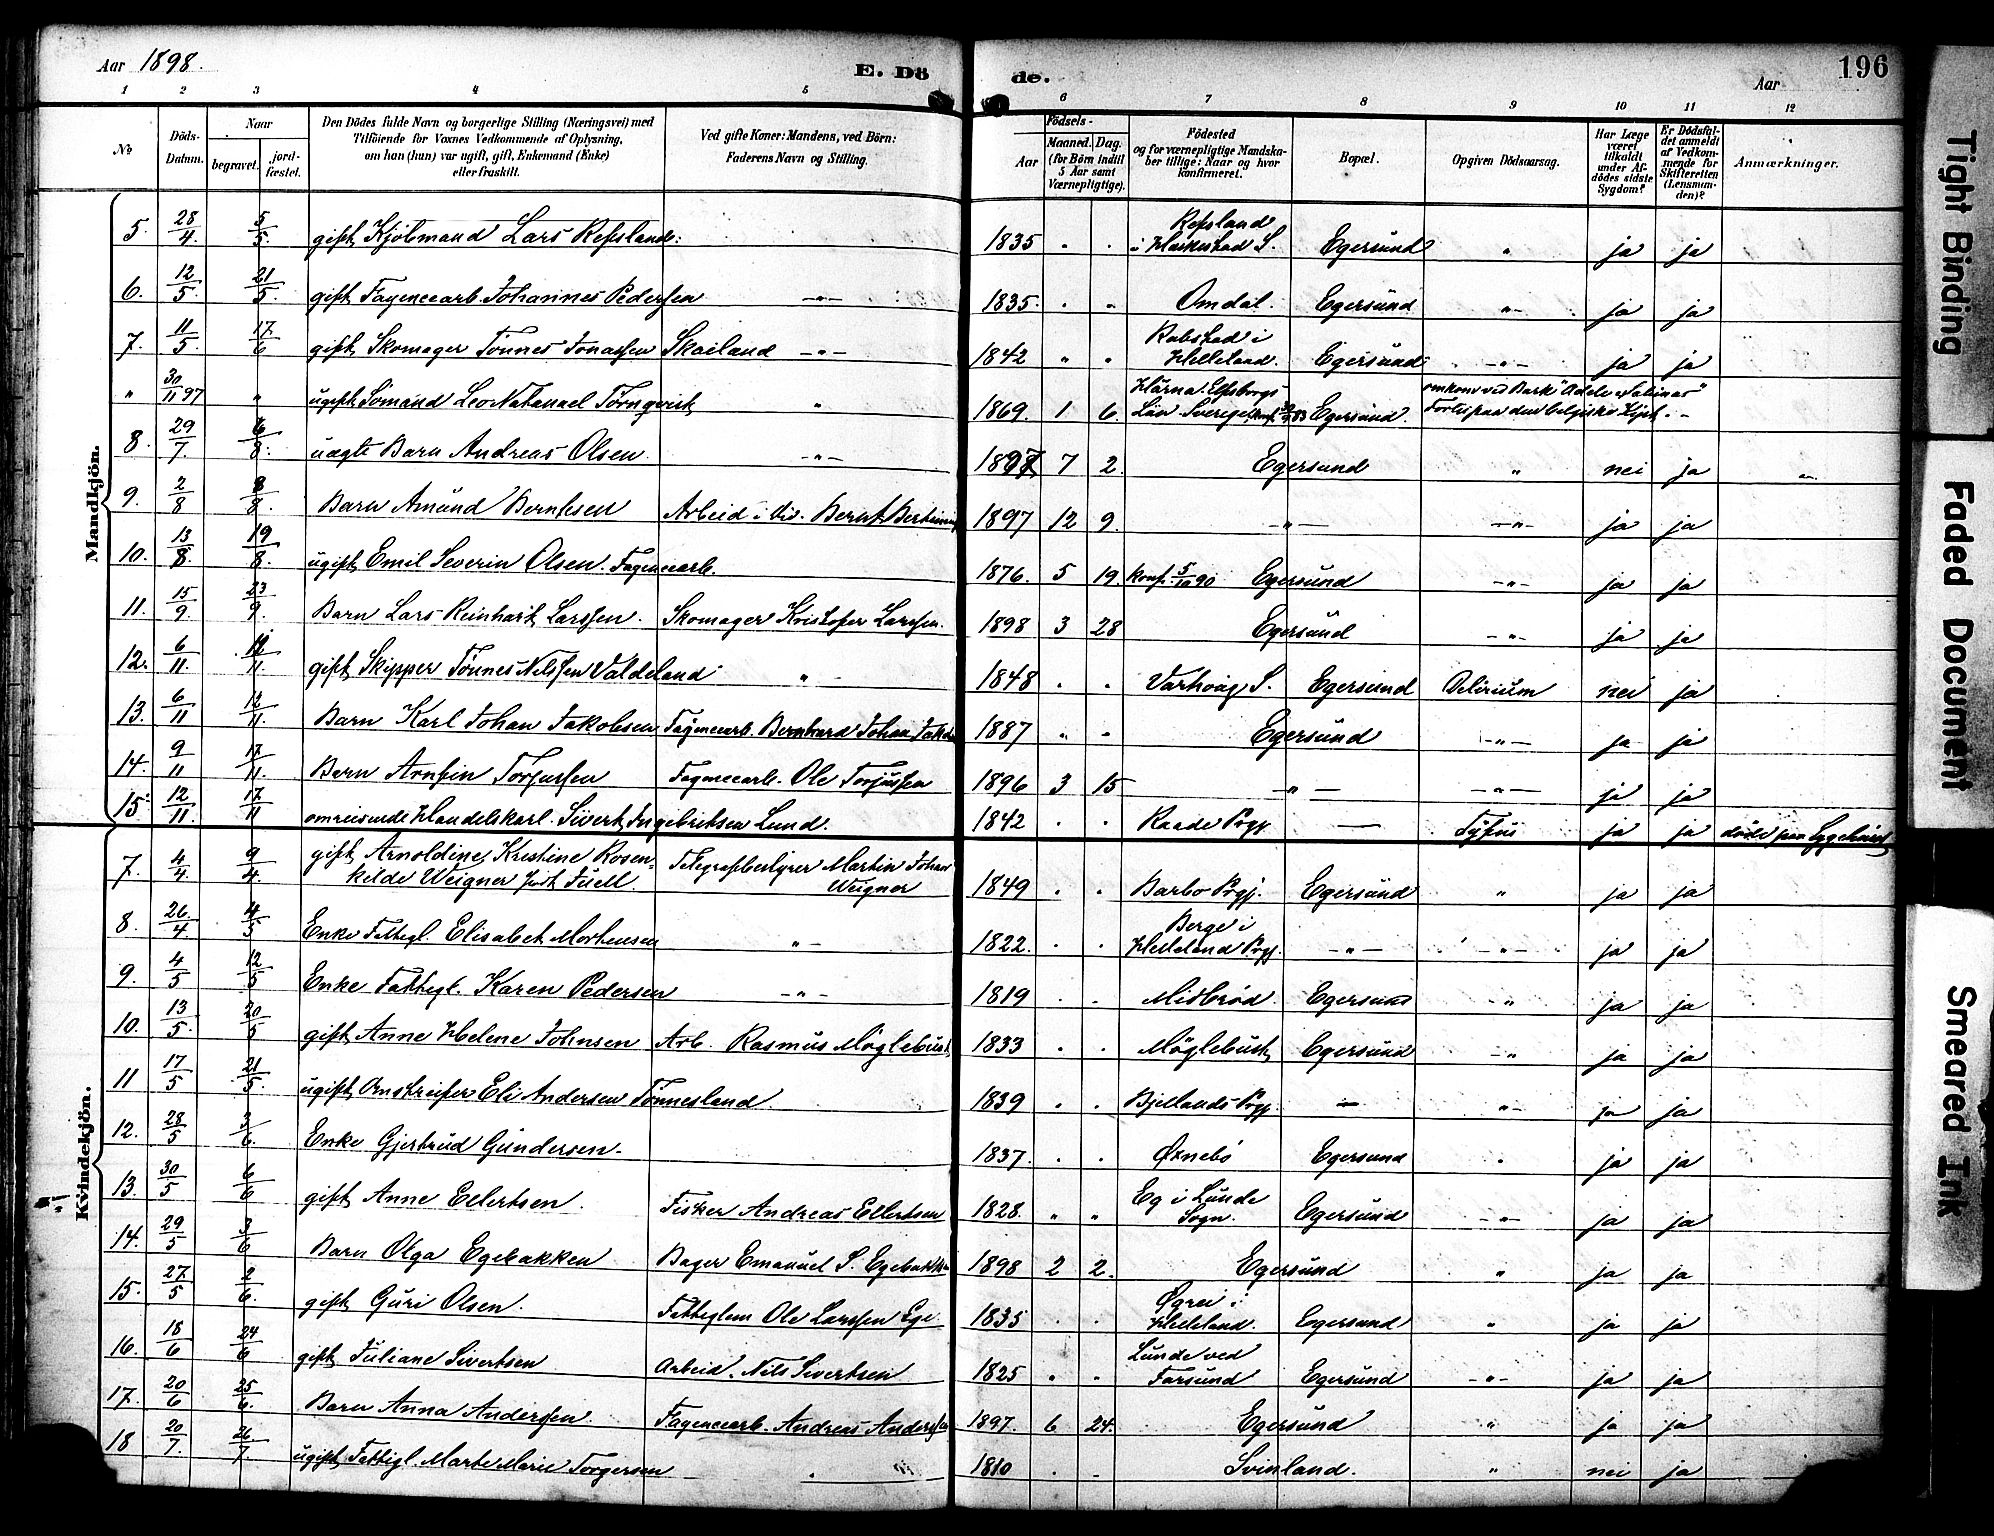 Aar 1898.
E. Dö de.
Aar
196
1 2 3 4 5 6 7 8 9 10 11 12
No
Döds-Datum.
Naar
begravet. jord-fæstet.
Den Dödes fulde Navn og borgerlige Stilling (Næringsvei) med
Tilföiende for Voxnes Vedkommende af Oplysning,
om han (hun) var ugift, gift, Enkemand (Enke)
eller fraskilt.
Ved gifte Koner: Mandens, ved Börn:
Faderens Navn og Stilling.
Födsels-
Aar Maaned. Dag.
(for Börn indtil 5 Aar samt Værnepligtige).
Födested
og for værnepligtige Mandskaber tillige: Naar og hvor konfirmeret.
Bopæl.
Opgiven Dödsaarsag.
Har Læge været tilkaldt under Afdödes sidste Sygdom?
Er Dödsfaldet anmeldt af Vedkommende for Skifteretten (Lensmanden)?
Anmærkninger.
Mandkjön.
5. 28/4. 5/5. gift Kjöbmand Lars Repsland. 1835 " " Repsland i Heskestad S. Egersund " ja ja
6. 12/5. 21/5. gift Fayencearb. Johannes Pedersen -"- 1835. " " Omdal. Egersund -"- ja ja
7. 11/5. 17/6 gift Skomager Tönnes Jonassen Skailand -"- 1842 " " Robstad i Helleland. Egersund -"- ja ja
" 30/11 97 " ugift Sömand Leo Natanael Törnqvist " 1869. 1 6. Elfsborgs Län Sverige, konf. Egersund. omkom ved Bark "Adele
8. 29/7. 6/8. uægte Barn Andreas Olsen. -"- 1897 7 2. Egersund " nei ja
9. 2/8 8/8. Barn Amund Berntsen Arbeid i Div. Bernt 1897 12 9. -"- -"- ja ja
10. 13/8. 19/8. ugift Emil Severin Olsen. Fayencearb. 1876. 5 19. konf. 5/10 90 Egersund -"- ja ja
11. 15/9. 23/9. Barn Lars Reinhart Larssen. Skomager Kristofer Larssen. 1898 3 28 Egersund -"- ja ja
12. 6/11. 12/11. gift Skipper Tönnes Nilssen Valdeland " 1848 " " Varhoug S. Egersund Delirium nei ja
13. 6/11 12/11. Barn Karl Johan Jakobsen Fayencearb. Bernhard Johan 1887 " " Egersund -"- ja ja
14. 9/11 17/11. Barn Arnfin Torjussen Fayencearb. Ole Torjussen 1896 3 15 -"- -"- ja ja
15. 12/11. 17/11 omreisende Handelskarl. Sivert Ingebriktsen Lund. 1842 " " Raade Prgj. — Tyfus ja ja döde paa Sygehuset
Kvindekjön.
7. 4/4. 9/4. gift Arnoldine Kristine Rosenkilde Weigner födt Juell. Telegrafbestyrer Martin Johan Weigner 1849 " " Barbo Prgj. Egersund " ja ja
8. 26/4 4/5 Enke Fattigl. Elisabet Mortensen "- 1822. " " Berge i Helleland Prgj. -"- -"- ja ja
9. 4/5 12/5 Enke Fattigl. Karen Pedersen -"- 1819 " " Midbröd. Egersund -"- ja ja
10. 13/5. 20/5 gift Anne Helene Johnsen Arb. Rasmus Möglebust 1833 " " Möglebust Egersund -"- ja ja
11 17/5 21/5. ugift Omstreifer Eli Andersen Tönnesland. 1839 " " Bjellands Prgj. — "- ja ja
12. 28/5 3/6. Enke Gjertrud Gundersen. 1837. " " Ötnebö Egersund " ja ja
13. 30/5 6/6 gift Anne Eilertsen. Fisker Andreas Eilertsen 1828. " " Eg i Lunde Sogn. Egersund -"- ja ja
14. 29/5 3/6 Barn Olga Egebakken Bager Emanuel S. Egebakken 1898 2 2. Egersund " ja ja
15. 27/5 2/6. gift Guri Olsen. Fattiglem Ole Larssen Ege 1835 " " Ögrei i Helleland. Egersund " ja ja
16. 18/6 24/6 gift Juliane Sivertsen Arbeid. Nils Sivertsen 1825 " " Lunde ved Farsund Egersund -"- ja ja
17. 20/6 25/6. Barn Anna Anderssen. Fayencearb. Andreas Anderssen 1897. 6 24. Egersund " ja ja
18 20/7. 26/7 ugift Fattigl. Marte Marie Torgersen — " 1810 " " Svinland. " nei ja
Tight Binding
Faded Document
Smeared Ink